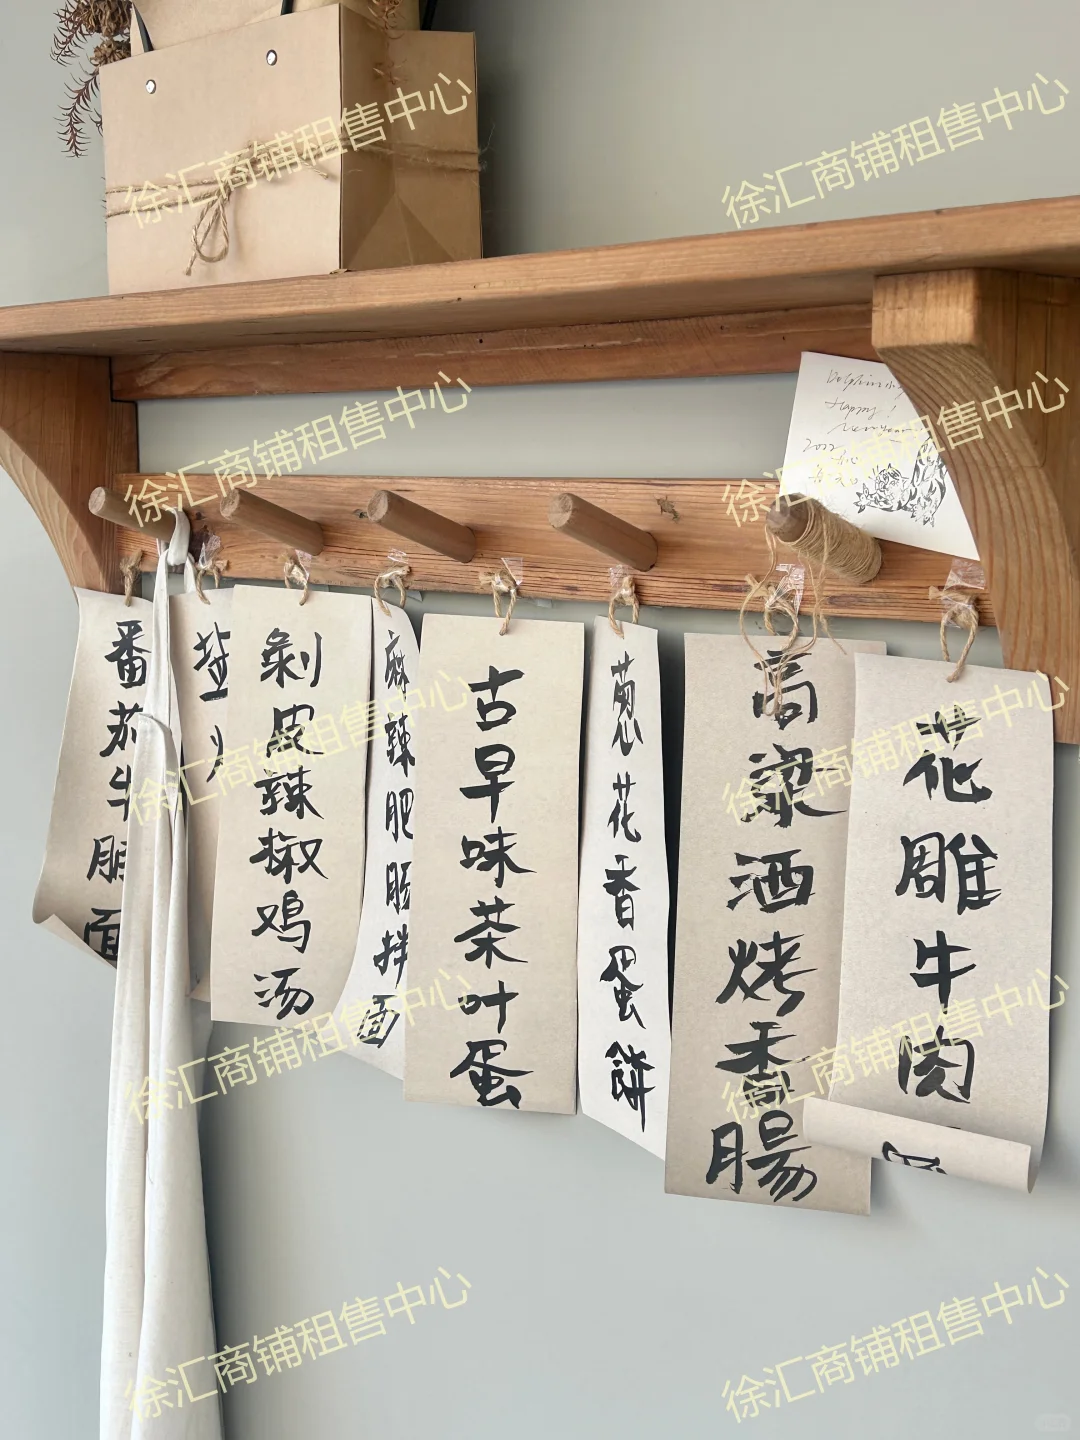 徐汇商铺租售中心
徐汇商铺租售中心
Happy!
2022
徐汇商铺租售中心
徐汇商铺租售中心
番茄牛腩面
剝皮辣椒鸡汤
麻辣肥肠拌面
古早味茶叶蛋
蔥花香蛋餅
高粱酒烤香腸
花雕牛肉
徐汇商铺租售中心
徐汇商铺租售中心
徐汇商铺租售中心
徐汇商铺租售中心
徐汇商铺租售中心
徐汇商铺租售中心